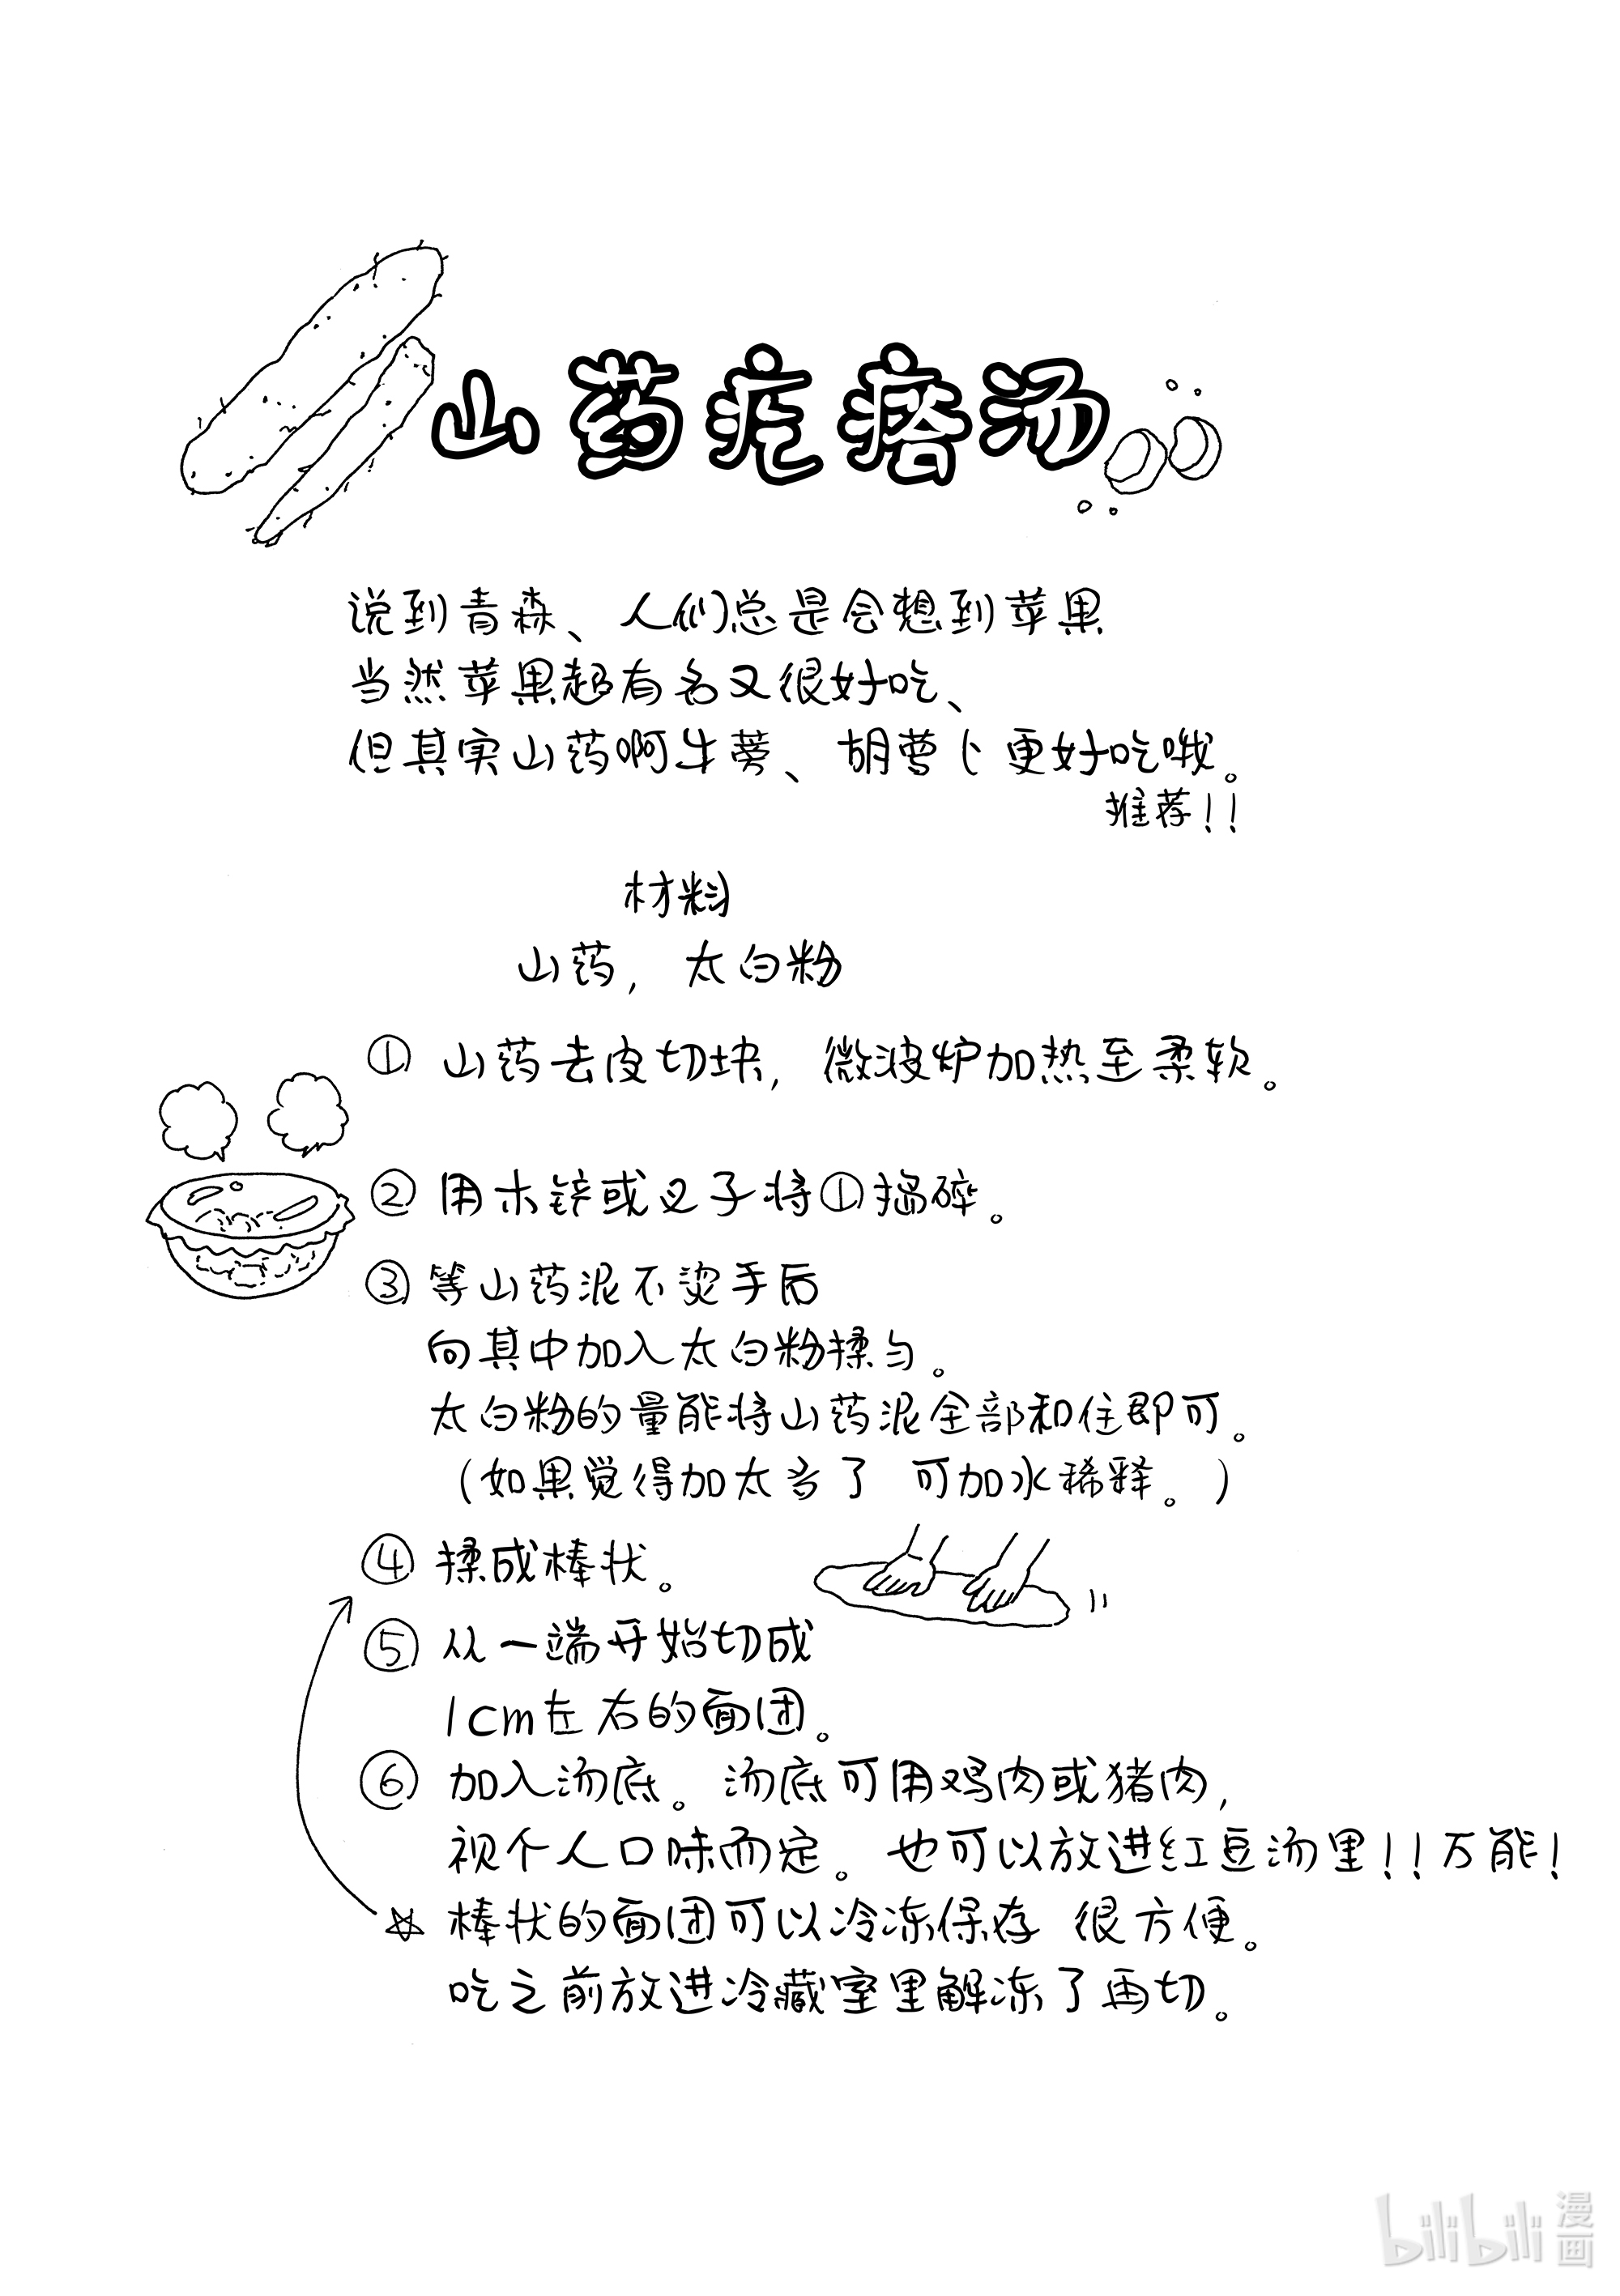 山药疙瘩汤
说到青森、人们总是会想到苹果
当然苹果超有名又很好吃、
但其实山药啊牛蒡、胡萝卜更好吃哦。
推荐!!
材料
山药,太白粉
① 山药去皮切块,微波炉加热至柔软。
② 用木铲或叉子将①捣碎。
③ 等山药泥不烫手后
向其中加入太白粉揉匀。
太白粉的量能将山药泥全部和住即可。
(如果觉得加太多了 可加水稀释。)
④ 揉成棒状。
⑤ 从一端开始切成
1cm左右的面团。
⑥ 加入汤底。汤底可用鸡肉或猪肉,
视个人口味而定。也可以放进红豆汤里!!万能!
☆ 棒状的面团可以冷冻保存 很方便。
吃之前放进冷藏室里解冻了再切。
bilibili 漫画